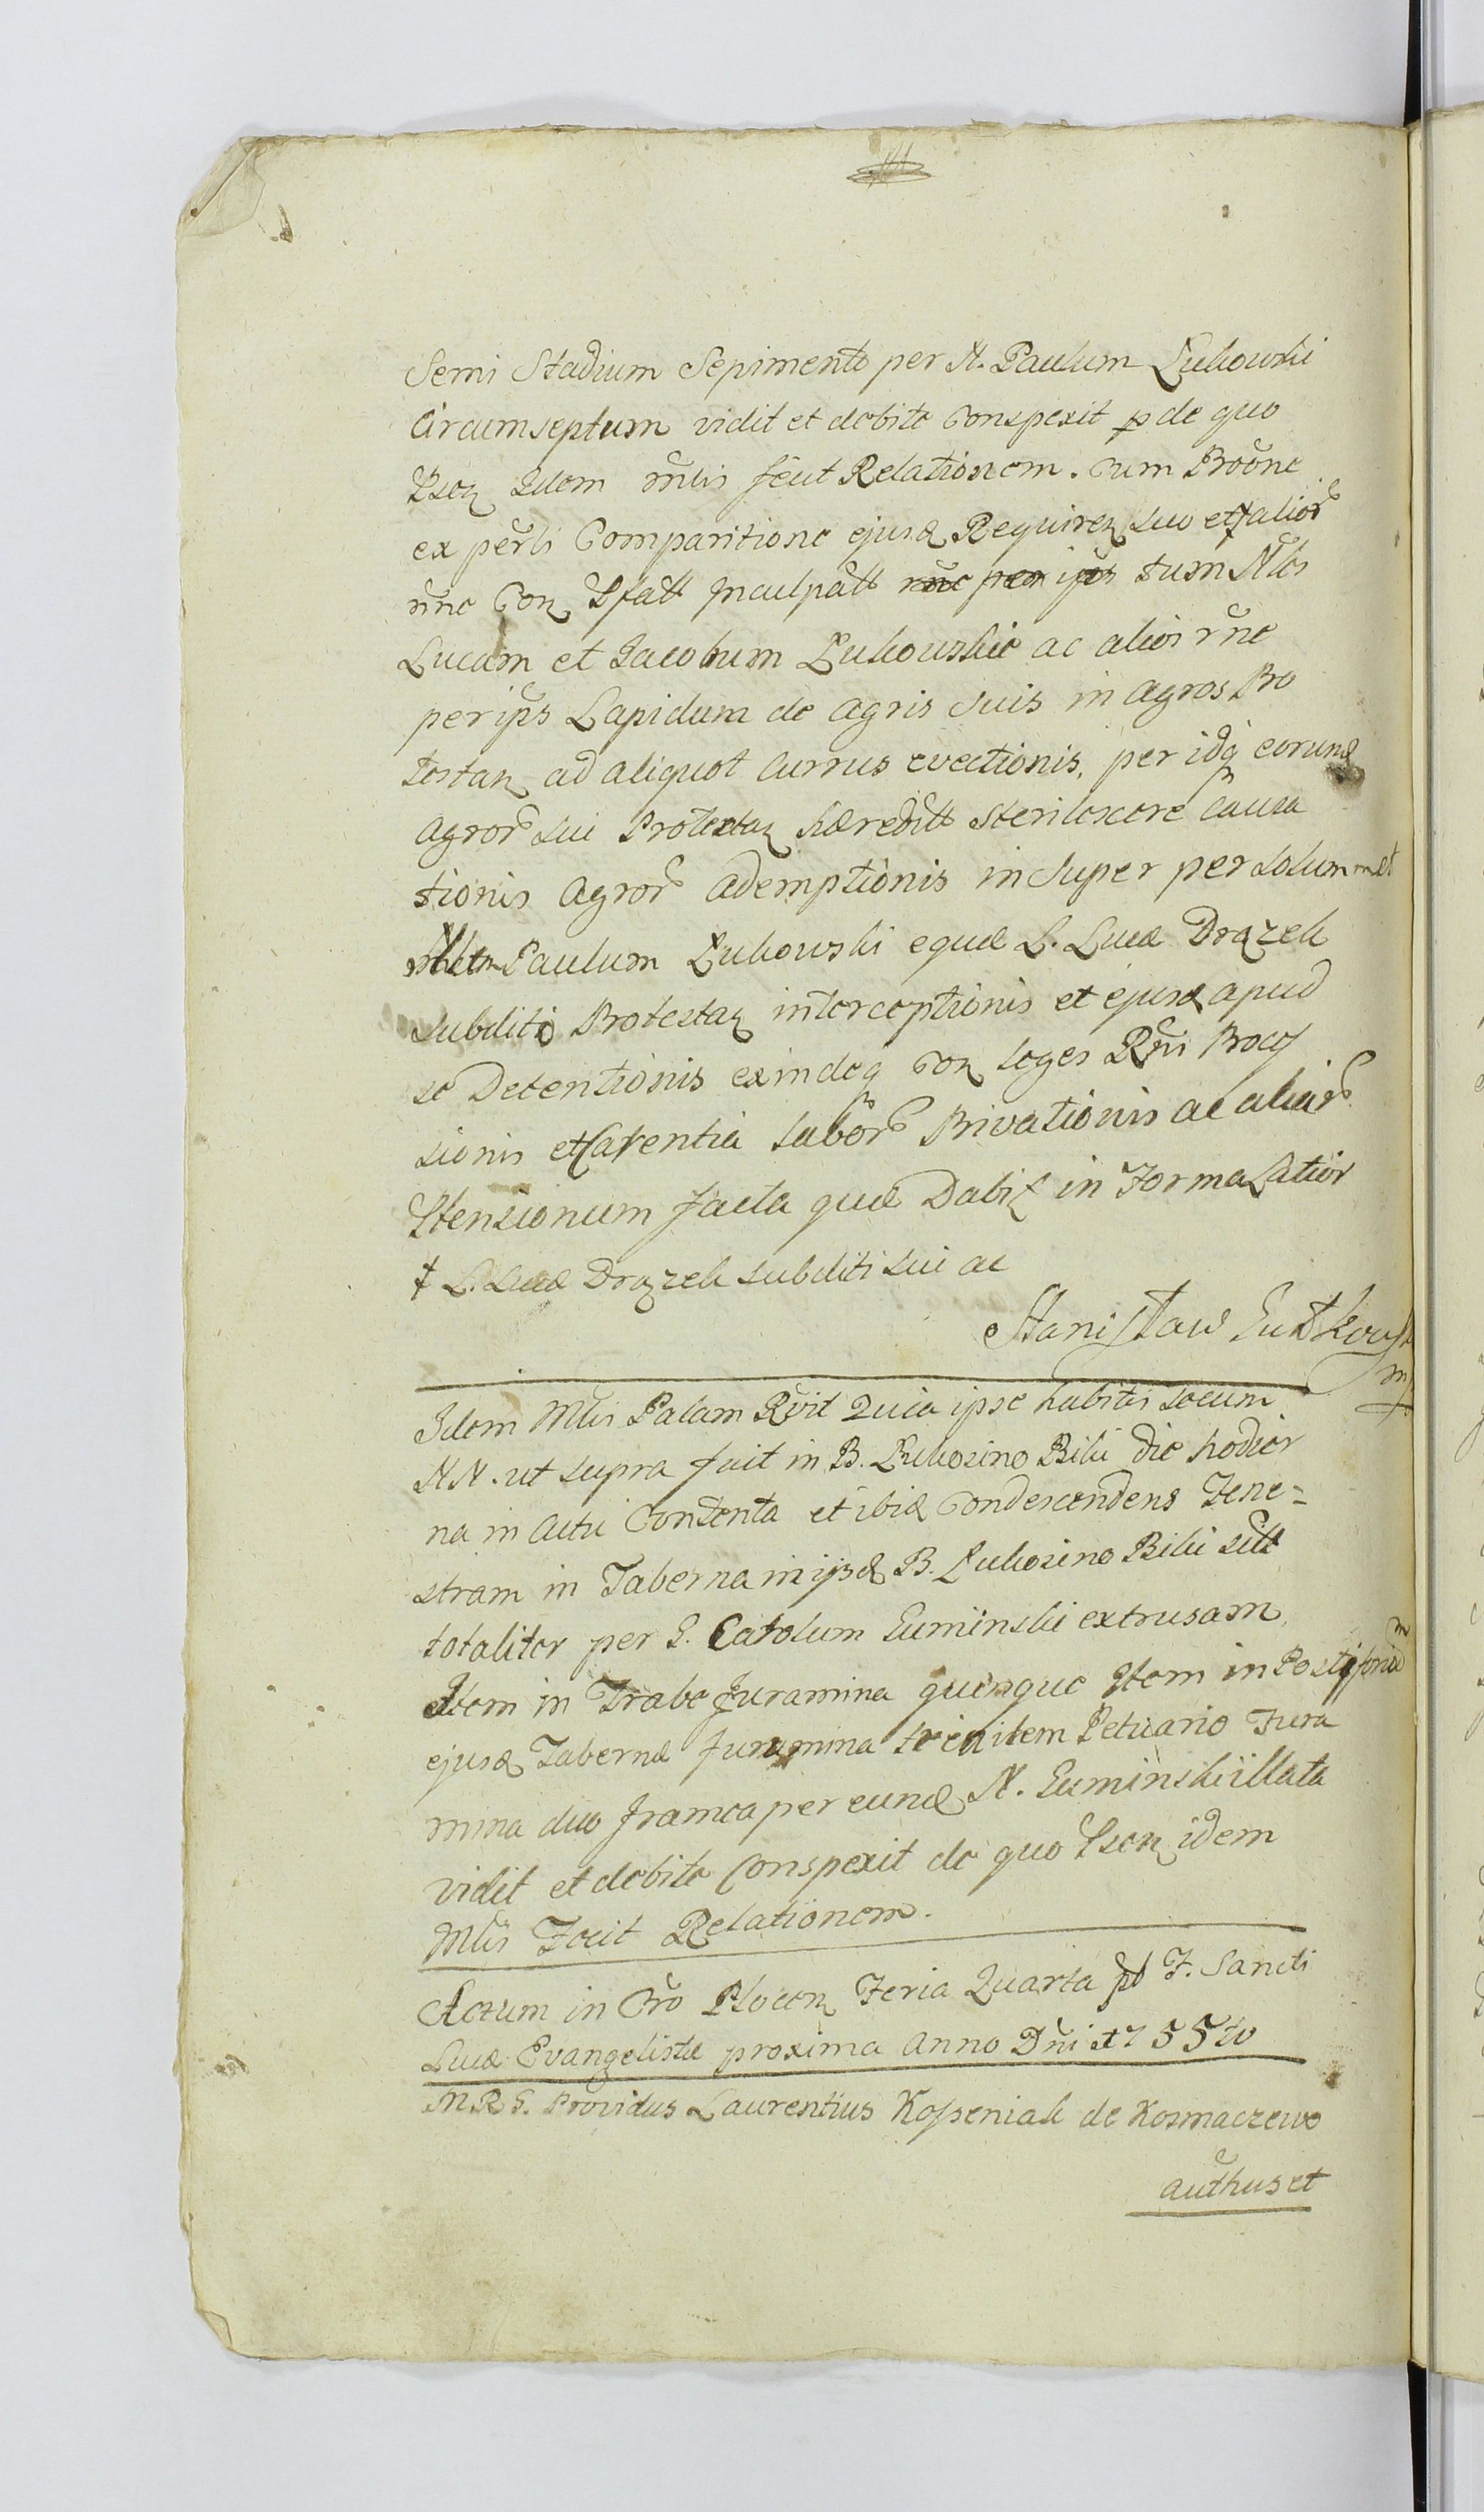 Semi Stadium Sepimento per N. Paulum Lukowski
Circumseptum vidit et debite Conspexit de quo
idem mlis fecit Relationem. Cum Proone
ex perli Comparitione ejusd Requiren suo et ‡ alior
nne Con Pfatt Inculpatt tum Nles
Lucam et Jacobum Lukowskie ac alios rne
per ips Lapidum de agris suis in agros Pro
testan ad aliquot Currus evectionis, per idq eorund
agror sui Protestan hæreditt Sterilescere Causa
tionis agror ademptionis in super per solummet
Paulum Lukowski equæ L. Lucæ Drązek
subditi Protestan interceptionis et ejusd apud
se Detentionis exindeq Con leges Rni Proces
sionis et Carentia labor Privationis ac aliar
Ptensionum facta quæ Dabit in Forma Latior
‡ L. Lucæ Drązek subditi sui ac
Stanisław Lutkowski
mp
Idem Mlis Palam Rvit Quia ipse habitis secum
NN. ut supra fuit in B. Lukosino Biki die hodier
na in Actu Contenta et ibid Condescendens Fene=
stram in Taberna in ipsd B. Lukosino Biki sitt
totaliter per G. Carolum Łuminski extrusam,
Item in Trabe Furamina quinque Item in Postiforiu
ejusd Tabernæ Furamina tria item Petuario Fura
mina duo framea per eund N. Łuminski illata
vidit et debite Conspexit de quo idem
Mlis Fecit Relationem.
Actum in Cro Plocen Feria Quarta pt F. Sancti
Lucæ Evangelistæ proxima Anno Dni 1755to
MRG. Providus Laurentius Kosseniak de Kosmaczewo
authus et